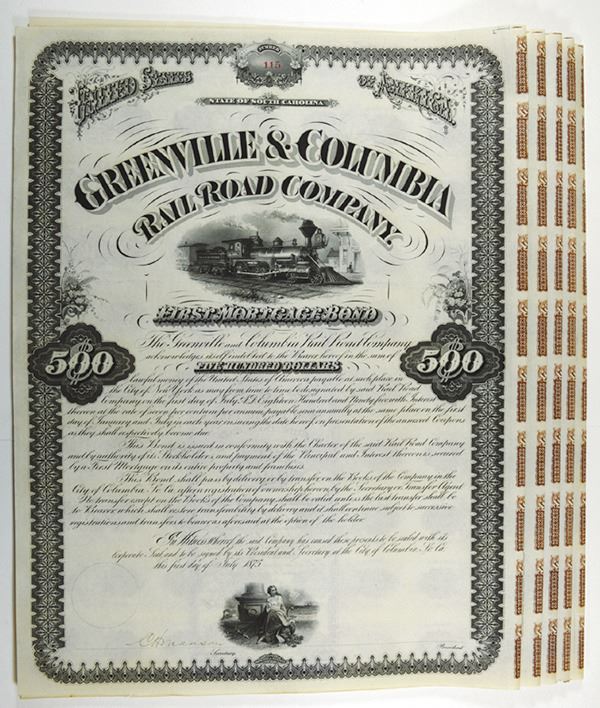 NUMBER
115
UNITED STATES OF AMERICA.
STATE OF SOUTH CAROLINA
GREENVILLE & COLUMBIA
RAIL ROAD COMPANY.
FIRST MORTGAGE BOND
The Greenville and Columbia Rail Road Company
acknowledges itself indebted to the Bearer hereof in the sum of
500 FIVE HUNDRED DOLLARS 500
lawful money of the United States of America payable at such place in
the City of New York as may from time to time be designated by said Rail Road
Company on the first day of July A.D. Eighteen Hundred and Ninety five with Interest
thereon at the rate of seven per centum per annum payable semi annually at the same place on the first
day of January and July in each year ensuing the date hereof on presentation of the annexed Coupons
as they shall respectively become due
This Bond is issued in conformity with the Charter of the said Rail Road Company
and by authority of its Stockholders, and payment of the Principal and Interest thereon is secured
by a First Mortgage on its entire property and franchises.
This Bond shall pass by delivery or by transfer on the Books of the Company in the
City of Columbia So. Ca. after a registration of ownership hereon by the Secretary or Transfer Agent
No transfer except on the Books of the Company shall be valid unless the last transfer shall be
to Bearer which shall restore transferability by delivery and it shall continue subject to successive
registrations and transfers to bearer as aforesaid at the option of the holder
In Witness Whereof the said Company has caused these presents to be sealed with its
corporate Seal and to be signed by its President and Secretary at the City of Columbia So Ca
this first day of July 1875
Secretary.
President